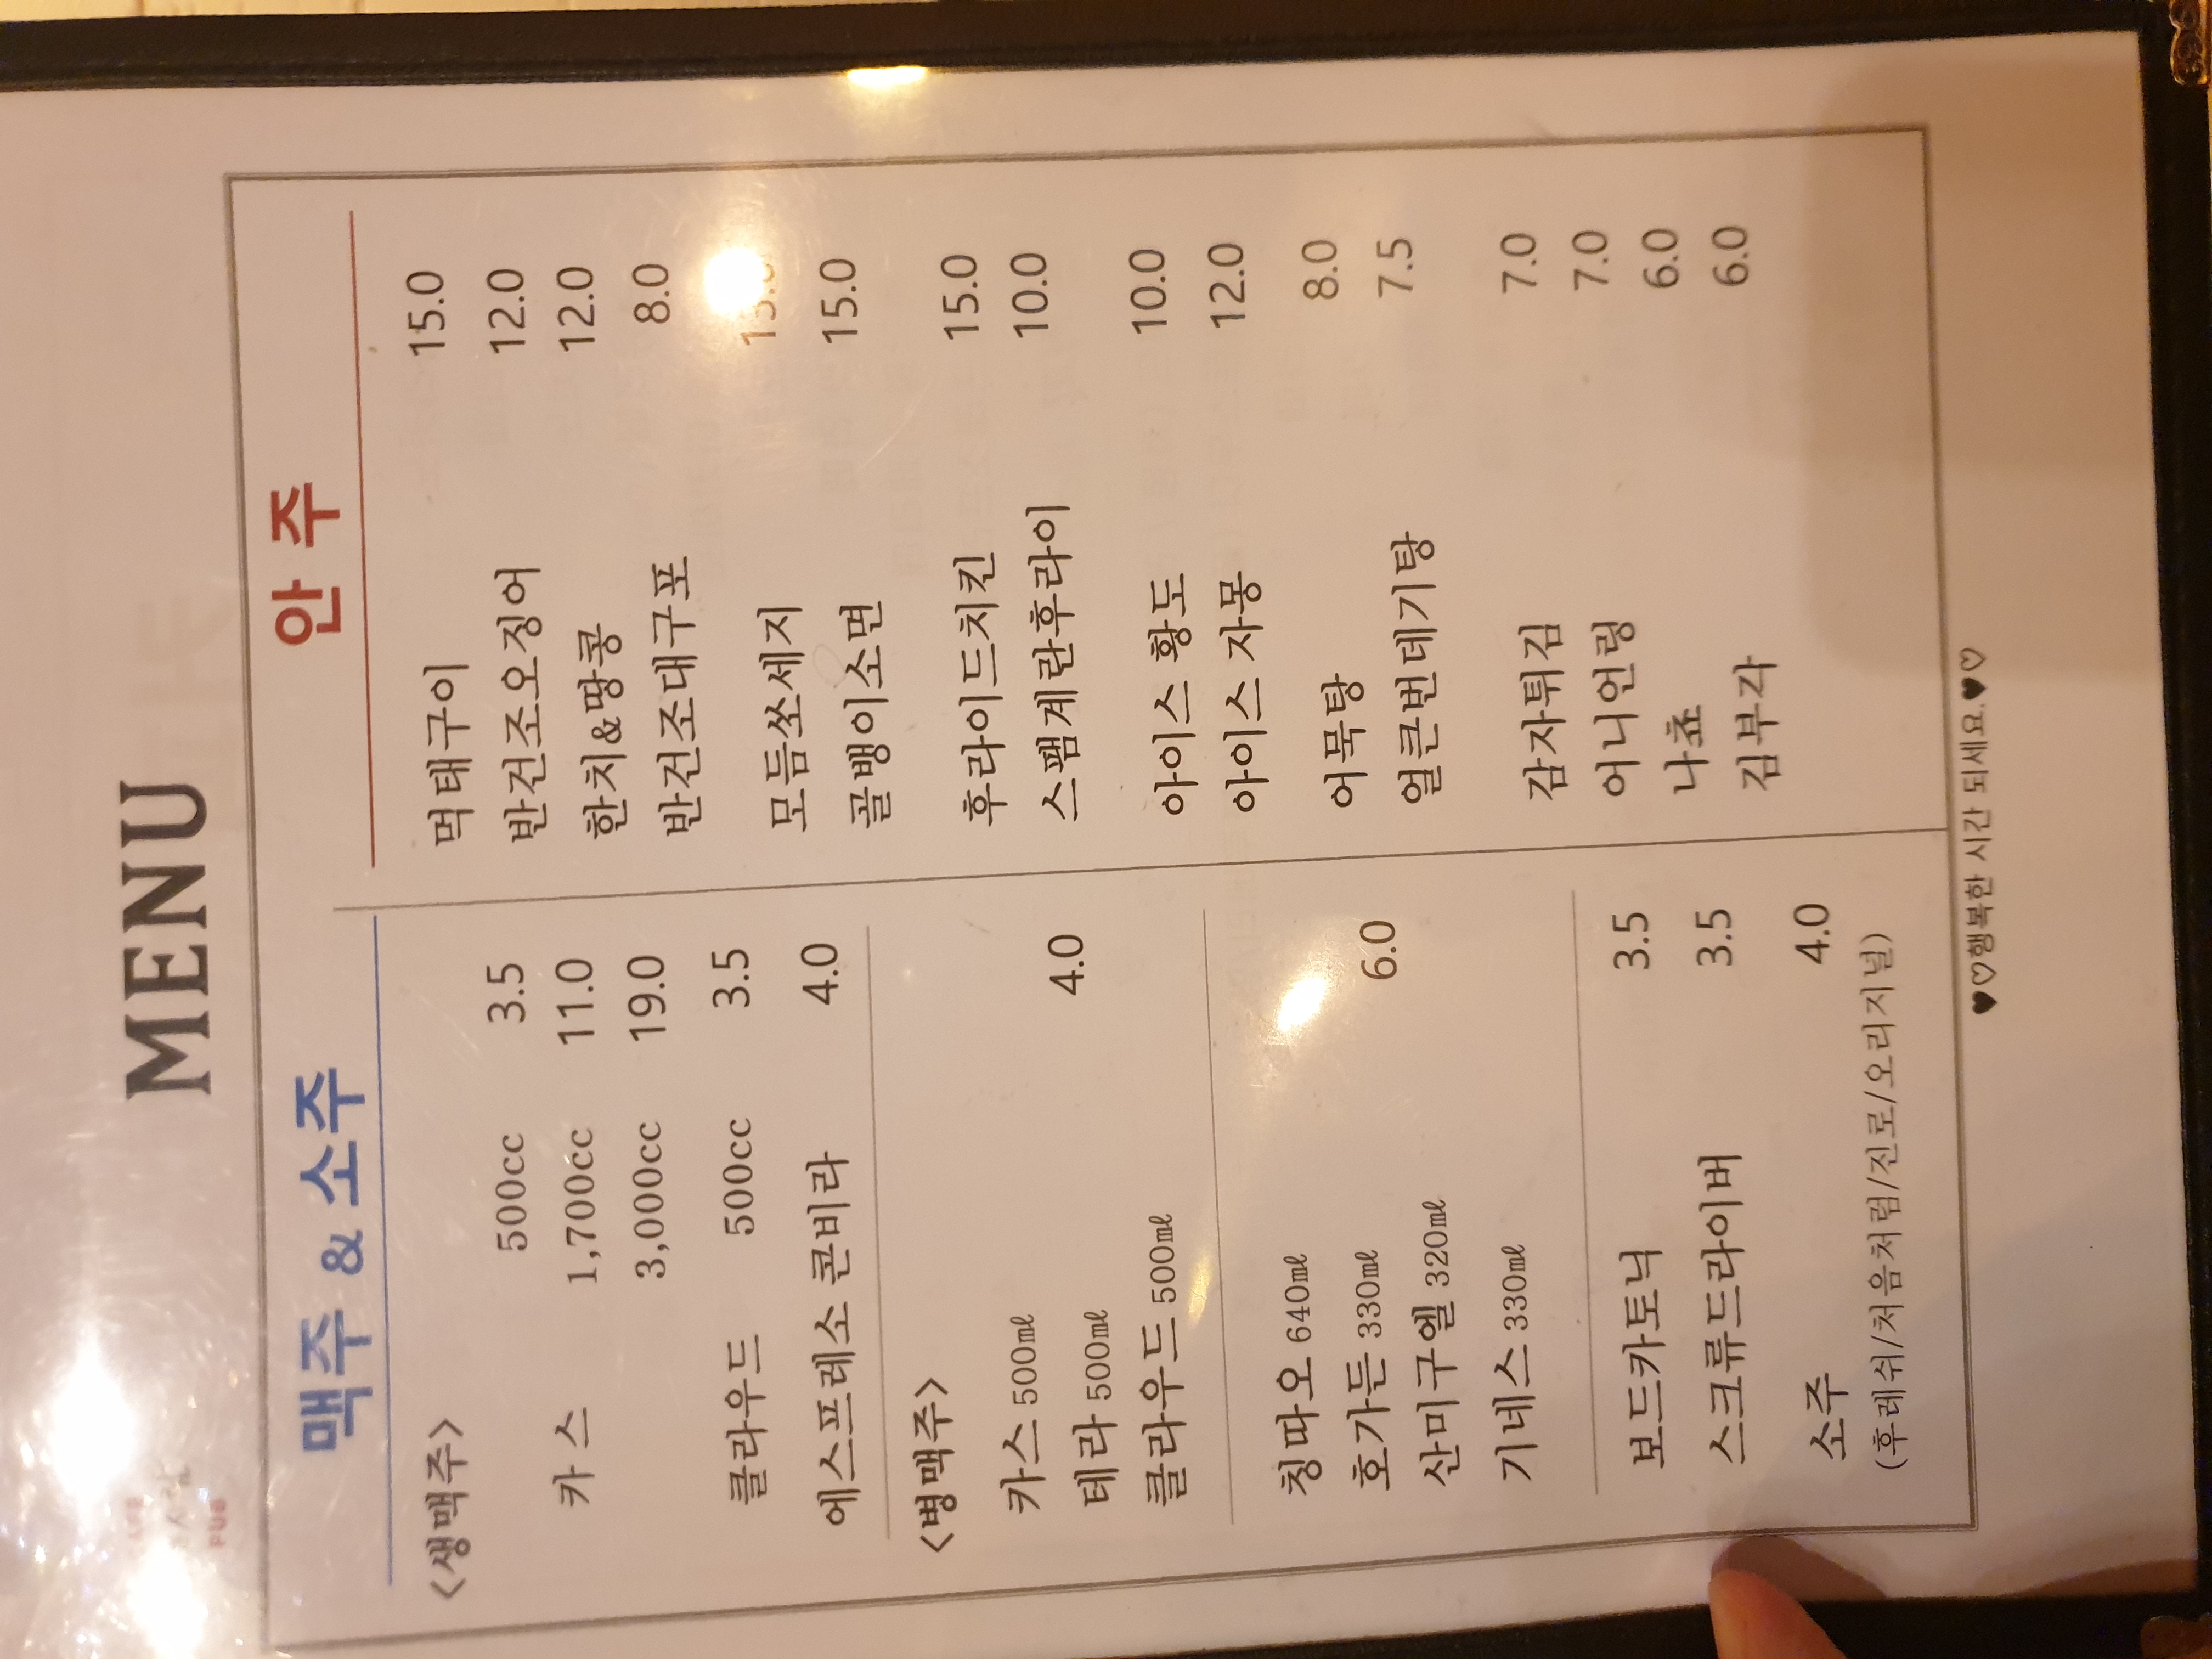 MENU
맥주 & 소주
<생맥주>
카스 500cc 3.5
1,700cc 11.0
3,000cc 19.0
클라우드 500cc 3.5
에스프레소 콘비라 4.0
<병맥주>
카스 500㎖
테라 500㎖ 4.0
클라우드 500㎖
칭따오 640㎖
호가든 330㎖ 6.0
산미구엘 320㎖
기네스 330㎖
보드카토닉 3.5
스크류드라이버 3.5
소주 4.0
(후레쉬/처음처럼/진로/오리지널)
안 주
먹태구이 15.0
반건조오징어 12.0
한치&땅콩 12.0
반건조대구포 8.0
모듬쏘세지
골뱅이소면 15.0
후라이드치킨 15.0
스팸계란후라이 10.0
아이스 황도 10.0
아이스 자몽 12.0
어묵탕 8.0
얼큰번데기탕 7.5
감자튀김 7.0
어니언링 7.0
나쵸 6.0
김부각 6.0
♥♡행복한 시간 되세요.♥♡
PUB